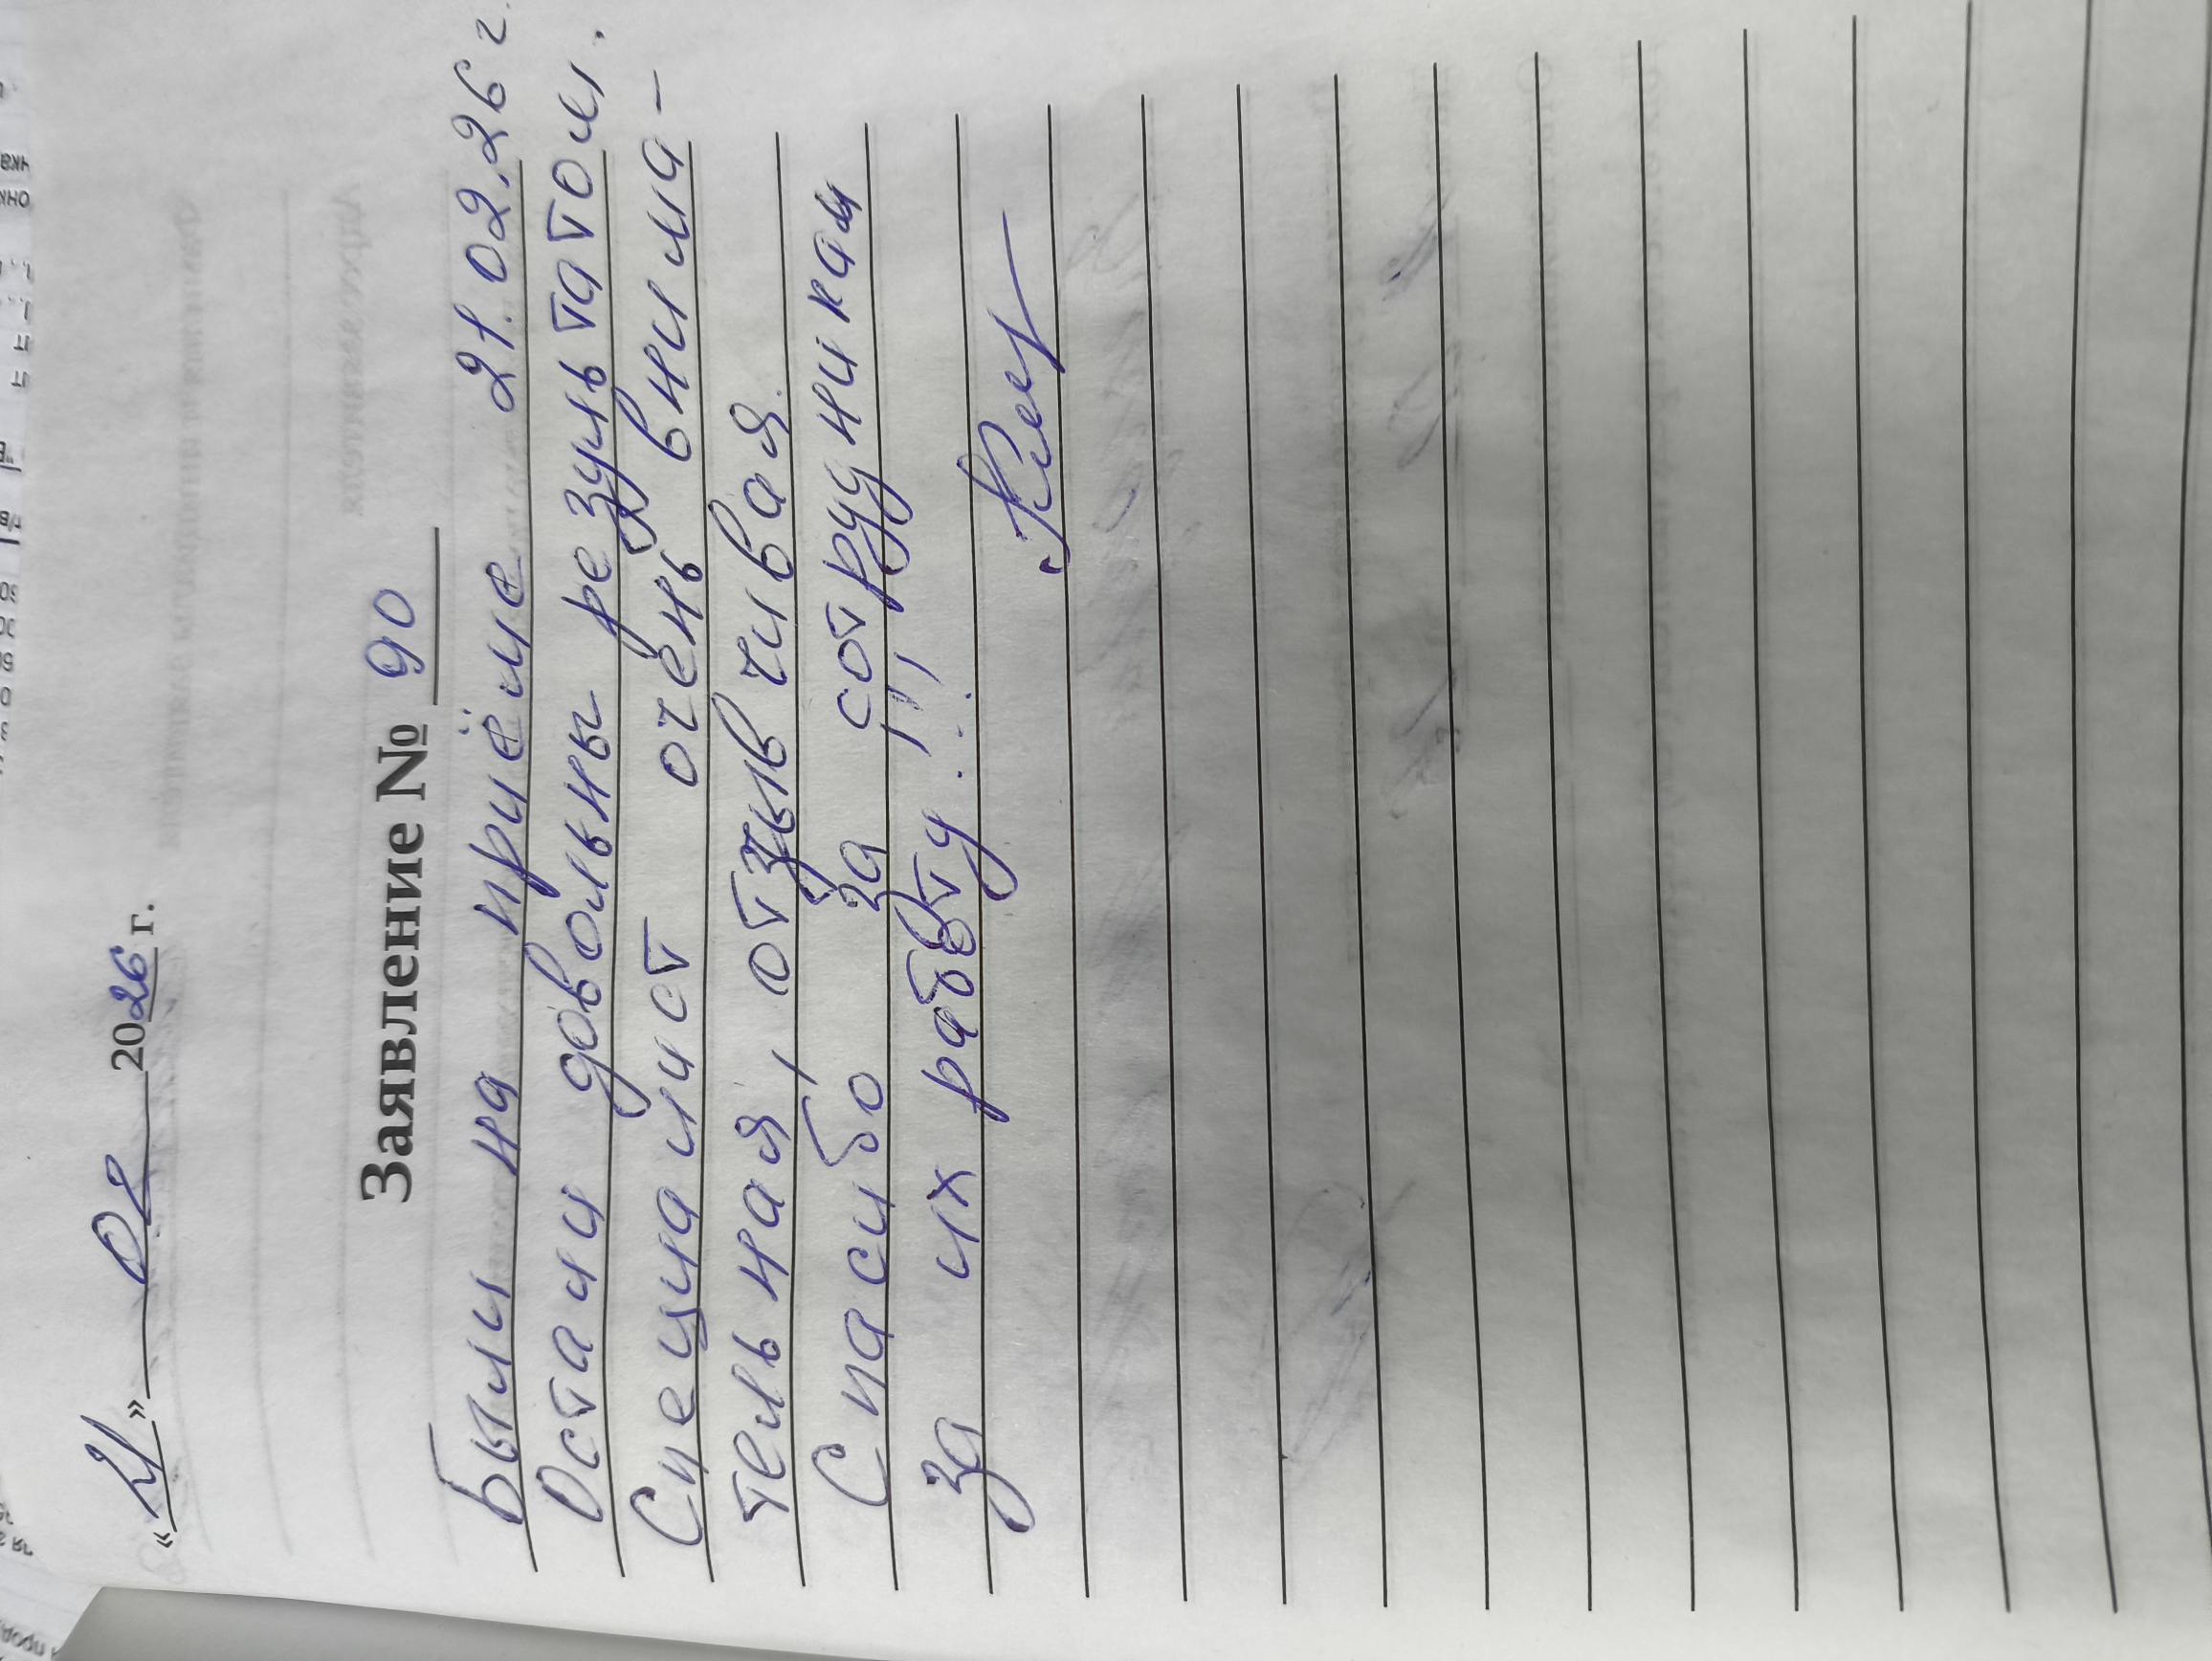 «21» 02 2026 г.
Заявление № 90
Были на приёме 21.02.26 г.
Остали довольны результатом.
Специалист очень внима-
тельная, отзывчивая.
Спасибо за сотрудникам
за их работу!!!